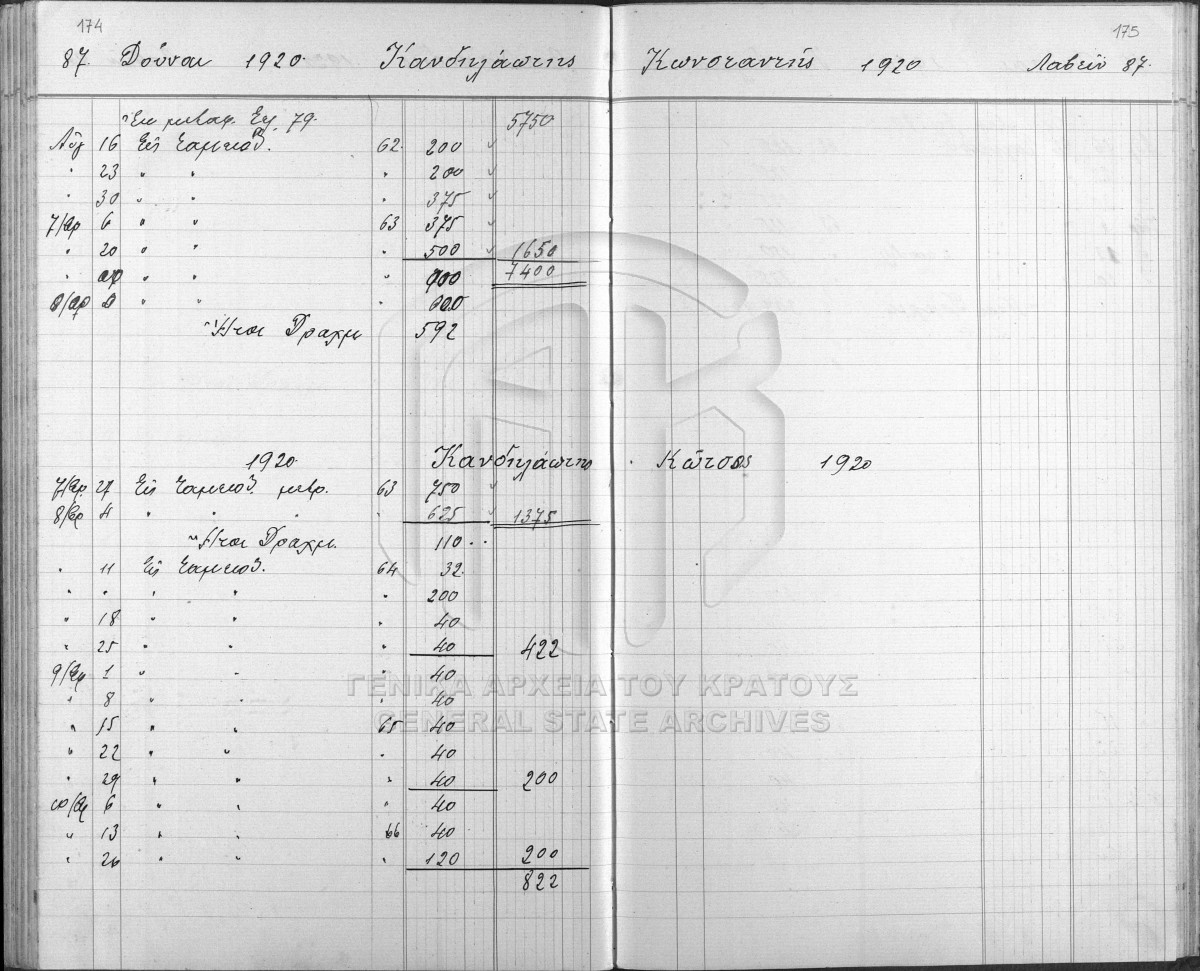 174
175
87. Δοῦναι 1920 Κανδηλάωτης Κωνσταντής 1920 Λαβεῖν 87.
Ἐκ μεταφ. Σελ. 79. 5750
Αὔγ 16 Εἰς Ταμεῖον. 62 200
" 23 " " " 200
" 30 " " " 375
7/βρ 6 " " 63 375
" 20 " " " 500 1650
" " " " 900 7400
8/βρ " " " 600
Ἤτοι Δραχμ 592
1920 Κανδηλάωτης Κῶτσος 1920
7/βρ. 27 Εἰς Ταμεῖον μετρ. 63 750
8/βρ 4 " " " " 625 1375
Ἤτοι Δραχμ. 110..
" 11 Εἰς Ταμεῖον. 64 32.
" " " " " 200
" 18 " " " 40
" 25 " " " 40 422
9/βρ 1 " " " 40
" 8 " " " 40
" 15 " " 65 40
" 22 " " " 40
" 29 " " " 40 200
10/βρ 6 " " " 40
" 13 " " 66 40
" 26 " " " 120 200
822
ΓΕΝΙΚΑ ΑΡΧΕΙΑ ΤΟΥ ΚΡΑΤΟΥΣ
GENERAL STATE ARCHIVES